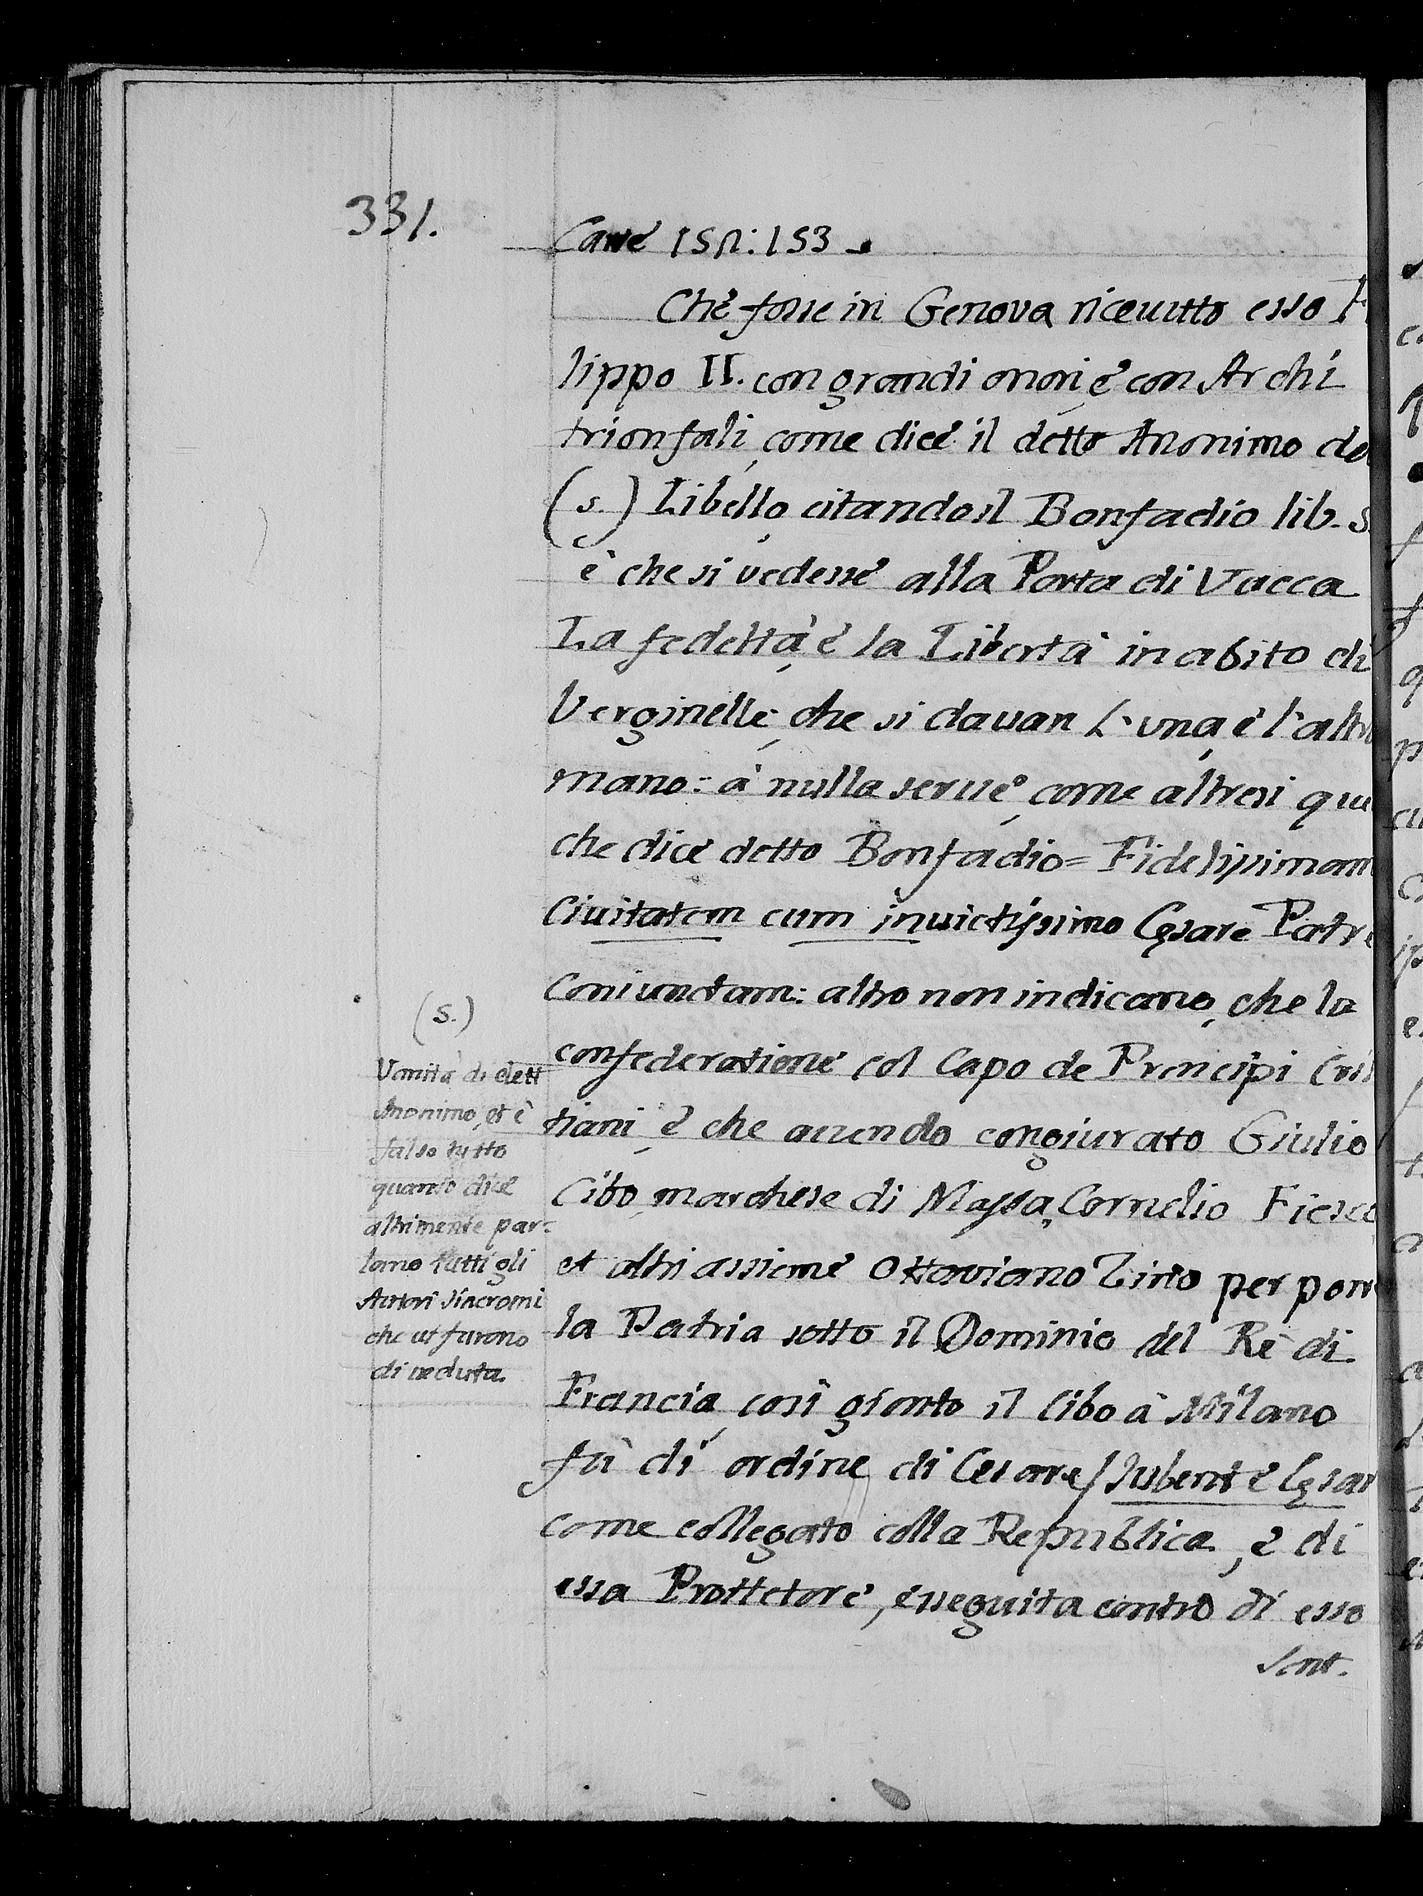 331.
Carre 152: 153.
Chè fosse in Genova riceuutto esso Fi
lippo II. con grandi onori, è con Archi
trionfali, come dicè il detto Anonimo del
(s.) Libello, citando il Bonfadio lib. 5.
è che si vedessè alla Porta di Vacca
La fedeltà, è la Libertà in abito di
Verginellè, che si dauan l'una, è l'altra
mano: à nulla seruè, come altresi quel
che dicè detto Bonfadio = Fidelissimam
Ciuitatem cum inuictissimo Cęsare Patre
Coniunctam: altro non indicano, che la
confederationè col Capo de Principi Cris
tiani, è che auendo congiurato Giulio
Cibo marchese di Massa, Cornelio Fiesco
et altri assiemè Ottaviano Zino per porre
la Patria sotto il Dominio del Rè di
Francia, così gionto il Cibo à Milano
fù di ordine di Cesare / Jubentè Cęsare
come collegato colla Republica, è di
essa Prottetorè, esseguita contro di esso
Sent.
(s.)
Vanità di dett
Anonimo, et è
falso tutto
quanto dicè
altrimente par-
lano tutti gli
Autori sincroni
che ui furono
di ueduta.